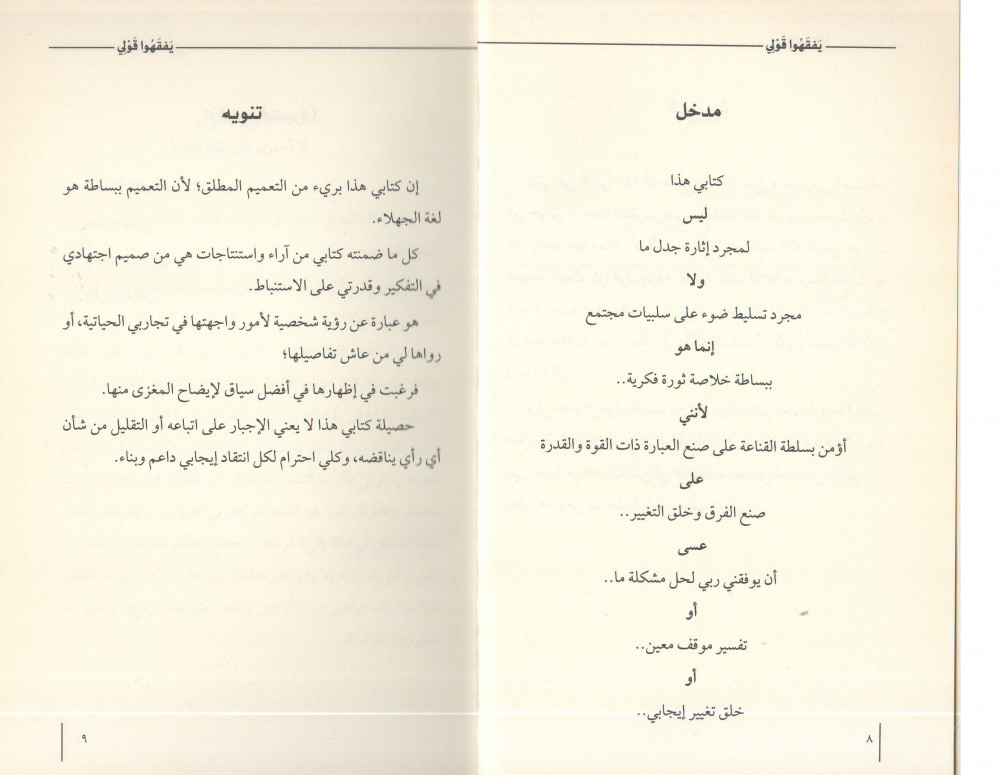 يَفقَهُوا قَوْلِي
مدخل
كتابي هذا
ليس
لمجرد إثارة جدل ما
ولا
مجرد تسليط ضوء على سلبيات مجتمع
إنما هو
ببساطة خلاصة ثورة فكرية..
لأنني
أؤمن بسلطة القناعة على صنع العبارة ذات القوة والقدرة
على
صنع الفرق وخلق التغيير..
عسى
أن يوفقني ربي لحل مشكلة ما..
أو
تفسير موقف معين..
أو
خلق تغيير إيجابي..
٨
يَفقَهُوا قَوْلِي
تنويه
إن كتابي هذا بريء من التعميم المطلق؛ لأن التعميم ببساطة هو
لغة الجهلاء.
كل ما ضمنته كتابي من آراء واستنتاجات هي من صميم اجتهادي
في التفكير وقدرتي على الاستنباط.
هو عبارة عن رؤية شخصية لأمور واجهتها في تجاربي الحياتية، أو
رواها لي من عاش تفاصيلها؛
فرغبت في إظهارها في أفضل سياق لإيضاح المغزى منها.
حصيلة كتابي هذا لا يعني الإجبار على اتباعه أو التقليل من شأن
أي رأي يناقضه، وكلي احترام لكل انتقاد إيجابي داعم وبناء.
٩